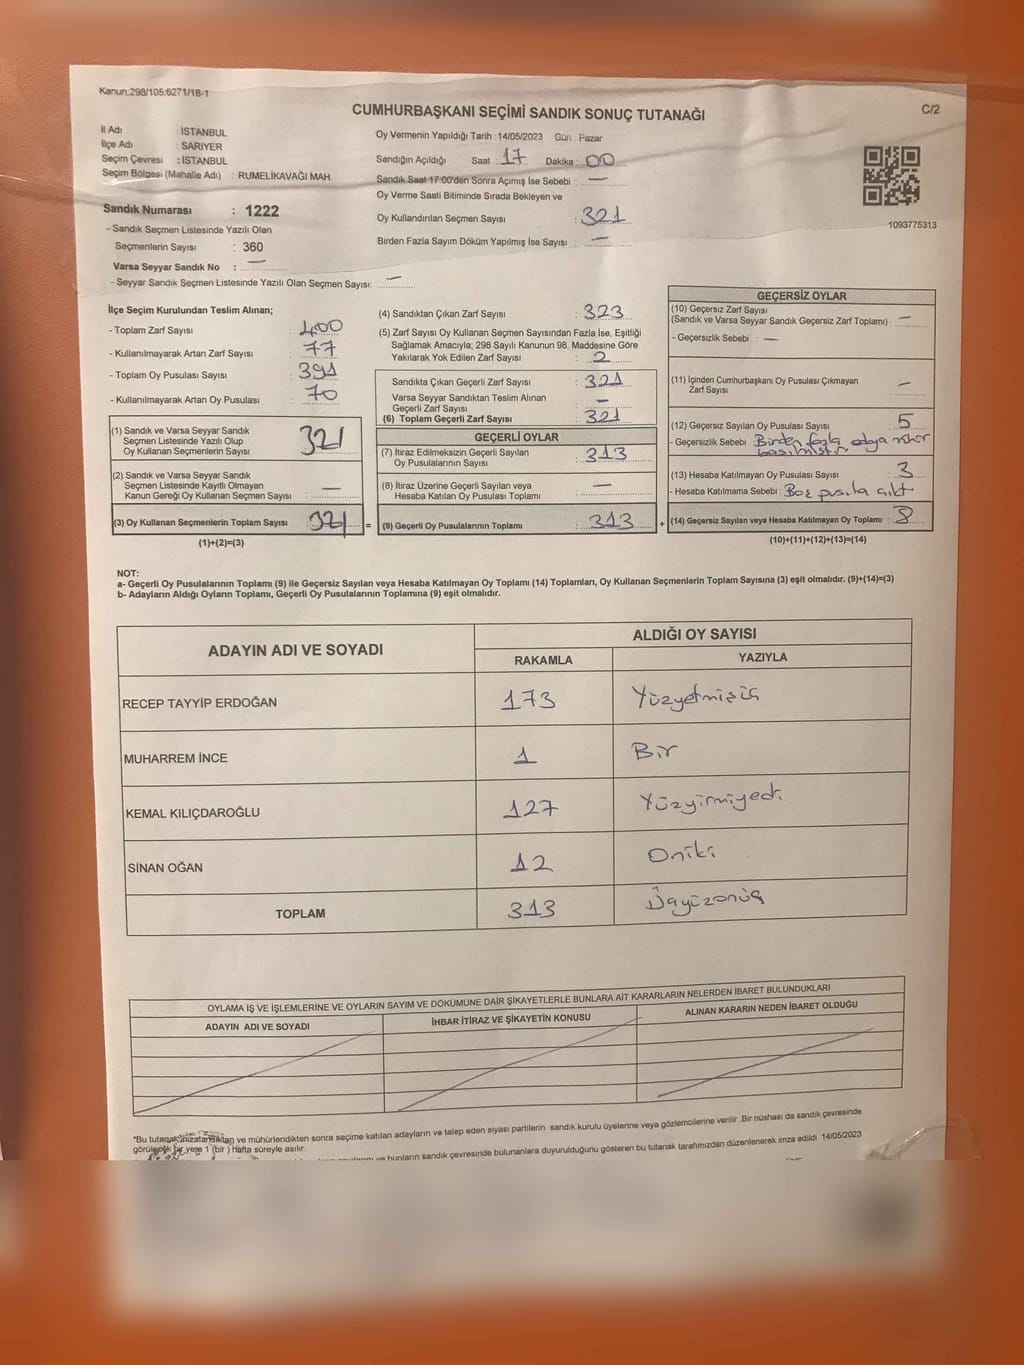 Kanun:298/105;6271/18-1
CUMHURBAŞKANI SEÇİMİ SANDIK SONUÇ TUTANAĞI
C/2
İl Adı İSTANBUL
İlçe Adı : SARIYER
Seçim Çevresi : İSTANBUL
Seçim Bölgesi (Mahalle Adı) : RUMELİKAVAĞI MAH.
Sandık Numarası : 1222
- Sandık Seçmen Listesinde Yazılı Olan
Seçmenlerin Sayısı : 360
Varsa Seyyar Sandık No : —
- Seyyar Sandık Seçmen Listesinde Yazılı Olan Seçmen Sayısı: —
Oy Vermenin Yapıldığı Tarih : 14/05/2023 Gün : Pazar
Sandığın Açıldığı Saat : 17 Dakika : 00
Sandık Saat 17:00'den Sonra Açımış İse Sebebi : —
Oy Verme Saati Bitiminde Sırada Bekleyen ve
Oy Kullandırılan Seçmen Sayısı : 321
Birden Fazla Sayım Döküm Yapılmış İse Sayısı : —
1093775313
İlçe Seçim Kurulundan Teslim Alınan;
- Toplam Zarf Sayısı : 400
- Kullanılmayarak Artan Zarf Sayısı : 77
- Toplam Oy Pusulası Sayısı : 391
- Kullanılmayarak Artan Oy Pusulası : 70
(1) Sandık ve Varsa Seyyar Sandık
Seçmen Listesinde Yazılı Olup
Oy Kullanan Seçmenlerin Sayısı : 321
(2) Sandık ve Varsa Seyyar Sandık
Seçmen Listesinde Kayıtlı Olmayan
Kanun Gereği Oy Kullanan Seçmen Sayısı : —
(3) Oy Kullanan Seçmenlerin Toplam Sayısı : 321 =
(1)+(2)=(3)
(4) Sandıktan Çıkan Zarf Sayısı : 323
(5) Zarf Sayısı Oy Kullanan Seçmen Sayısından Fazla İse, Eşitliği
Sağlamak Amacıyla; 298 Sayılı Kanunun 98. Maddesine Göre
Yakılarak Yok Edilen Zarf Sayısı : 2
Sandıkta Çıkan Geçerli Zarf Sayısı : 321
Varsa Seyyar Sandıktan Teslim Alınan
Geçerli Zarf Sayısı : —
(6) Toplam Geçerli Zarf Sayısı : 321
GEÇERLİ OYLAR
(7) İtiraz Edilmeksizin Geçerli Sayılan
Oy Pusulalarının Sayısı : 313
(8) İtiraz Üzerine Geçerli Sayılan veya
Hesaba Katılan Oy Pusulası Toplamı : —
(9) Geçerli Oy Pusulalarının Toplamı : 313 +
GEÇERSİZ OYLAR
(10) Geçersiz Zarf Sayısı
(Sandık ve Varsa Seyyar Sandık Geçersiz Zarf Toplamı) : —
- Geçersizlik Sebebi : —
(11) İçinden Cumhurbaşkanı Oy Pusulası Çıkmayan
Zarf Sayısı : —
(12) Geçersiz Sayılan Oy Pusulası Sayısı : 5
- Geçersizlik Sebebi : Birden fazla adaya mühür
basılmıştır
(13) Hesaba Katılmayan Oy Pusulası Sayısı : 3
- Hesaba Katılmama Sebebi : Boş pusula çıktı
(14) Geçersiz Sayılan veya Hesaba Katılmayan Oy Toplamı : 8
(10)+(11)+(12)+(13)=(14)
NOT:
a- Geçerli Oy Pusulalarının Toplamı (9) ile Geçersiz Sayılan veya Hesaba Katılmayan Oy Toplamı (14) Toplamları, Oy Kullanan Seçmenlerin Toplam Sayısına (3) eşit olmalıdır. (9)+(14)=(3)
b- Adayların Aldığı Oyların Toplamı, Geçerli Oy Pusulalarının Toplamına (9) eşit olmalıdır.
ADAYIN ADI VE SOYADI ALDIĞI OY SAYISI
RAKAMLA YAZIYLA
RECEP TAYYİP ERDOĞAN 173 Yüzyetmişüç
MUHARREM İNCE 1 Bir
KEMAL KILIÇDAROĞLU 127 Yüzyirmiyedi
SİNAN OĞAN 12 Oniki
TOPLAM 313 Üçyüzonüç
OYLAMA İŞ VE İŞLEMLERİNE VE OYLARIN SAYIM VE DÖKÜMÜNE DAİR ŞİKAYETLERLE BUNLARA AİT KARARLARIN NELERDEN İBARET BULUNDUKLARI
ADAYIN ADI VE SOYADI İHBAR İTİRAZ VE ŞİKAYETİN KONUSU ALINAN KARARIN NEDEN İBARET OLDUĞU
*Bu tutanak imzalandıktan ve mühürlendikten sonra seçime katılan adayların ve talep eden siyasi partilerin sandık kurulu üyelerine veya gözlemcilerine verilir. Bir nüshası da sandık çevresinde
görülecek bir yere 1 (bir ) hafta süreyle asılır.
ve bunların sandık çevresinde bulunanlara duyurulduğunu gösteren bu tutanak tarafımızdan düzenlenerek imza edildi. 14/05/2023